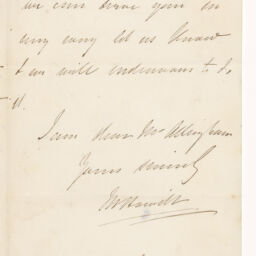 we can serve you in
any way let us know
& we will endeavour to do
it.
I am dear Mr Allingham
Yours sincerely
M Howitt